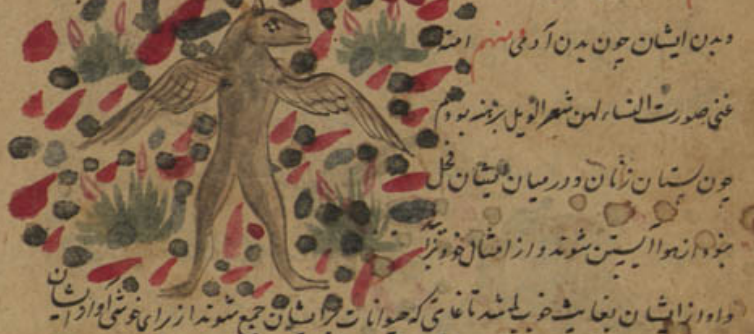 و بدن ایشان چون بدن آدمی و منهم امته
غنی صورت النساء لهن شعر الویل برهنه بودهم
چون پستان زنان و در میان ایشان فحل
نبود از هوا آبستن شوند و از امثال خود بزاید
و آواز ایشان بغایت خوب باشد تا غایتی که حیوانات بر ایشان جمع شوند از برای خوشی آواز ایشان